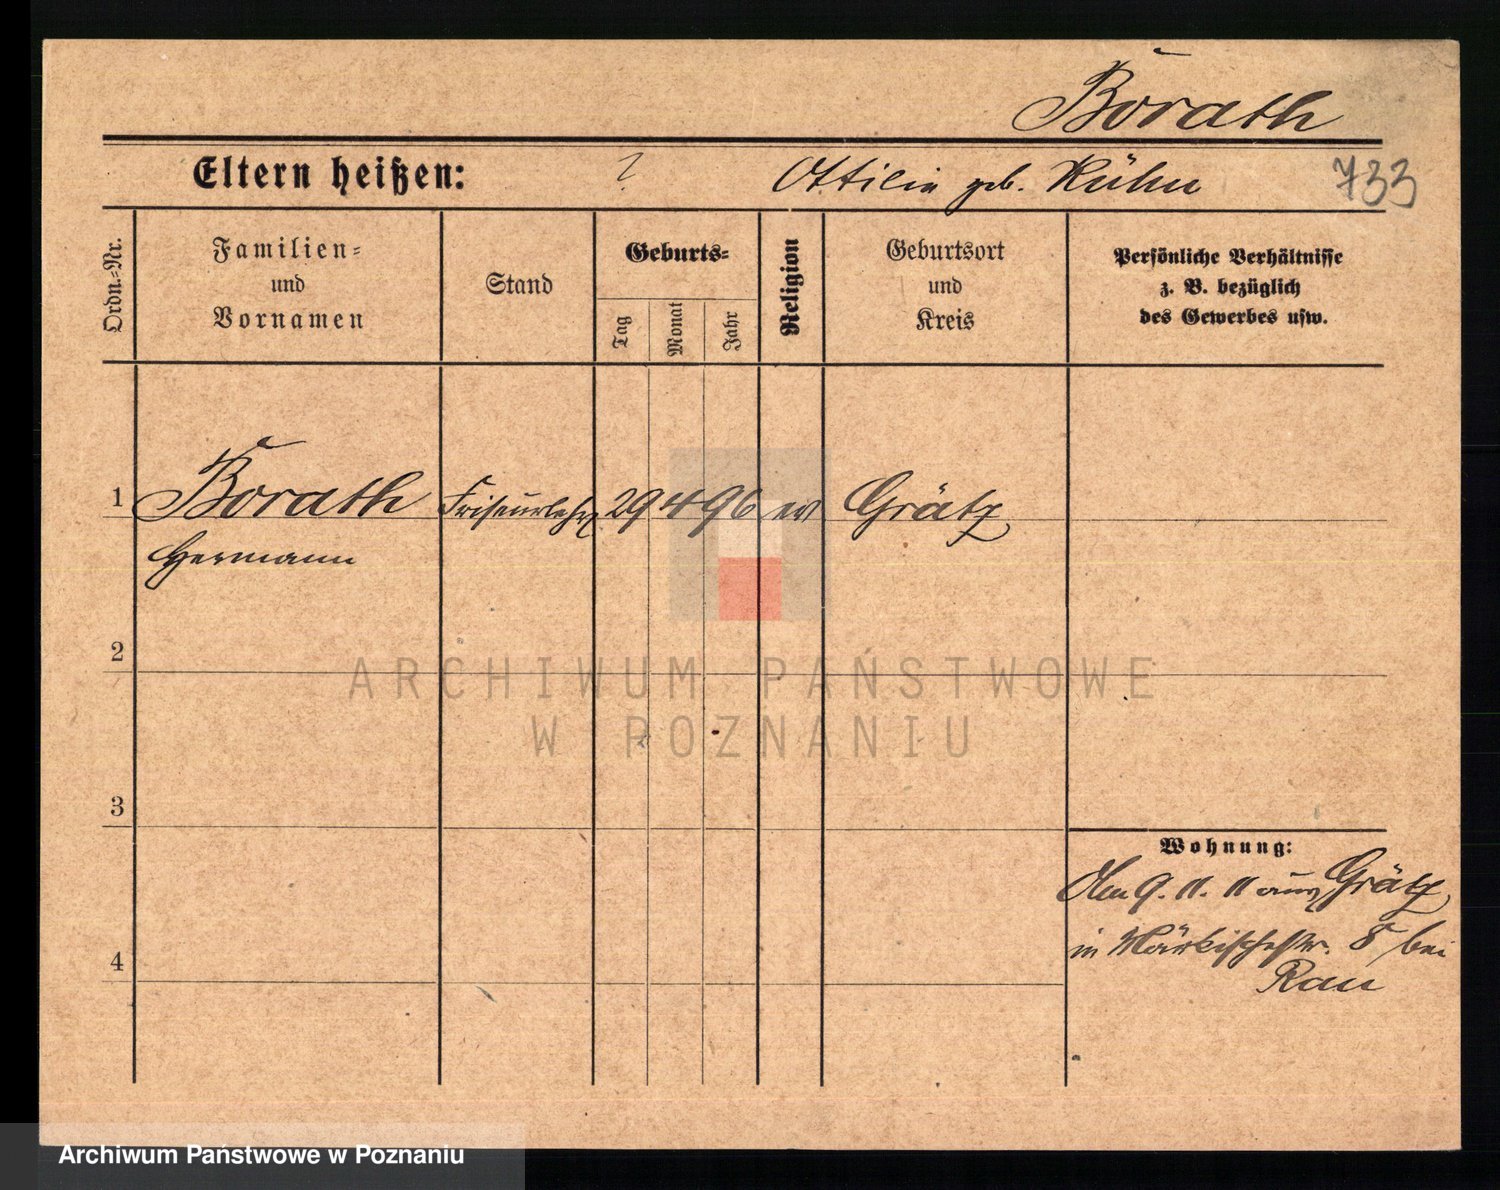 Borath
Eltern heißen: ? Ottilie geb. Kühn 733
Ordn.-Nr.
Familien-
und
Vornamen
Stand
Geburts-
Tag
Monat
Jahr
Religion
Geburtsort
und
Kreis
Persönliche Verhältnisse
z. B. bezüglich
des Gewerbes usw.
1 Borath Friseurlehrl 29 4 96 ev Grätz
Hermann
2
ARCHIWUM PAŃSTWOWE
W POZNANIU
3
Wohnung:
Am 9. 11. 11 aus Grätz
in Märkischestr. 8 bei
Rau
4
Archiwum Państwowe w Poznaniu